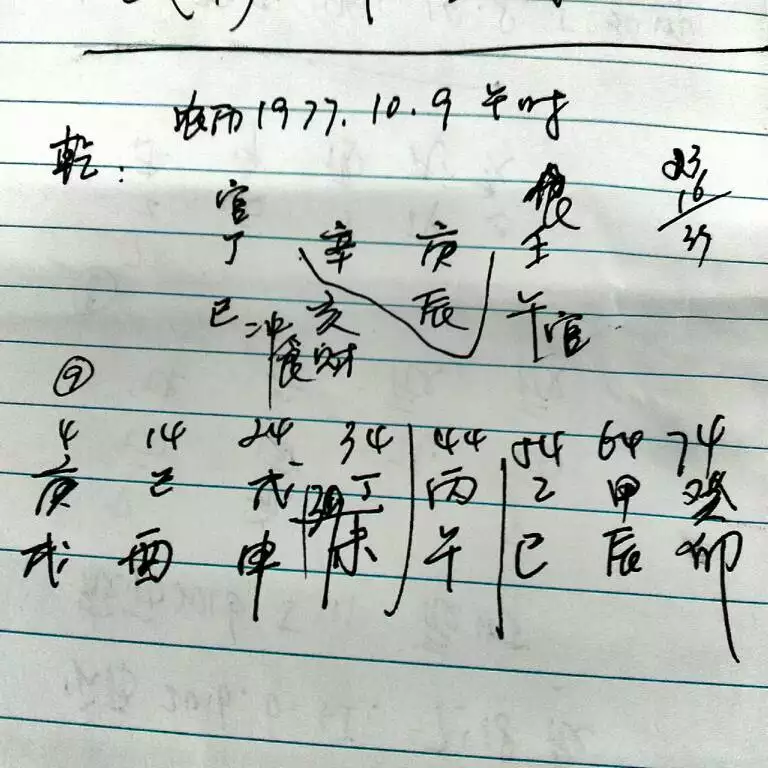 农历1977.10.9 午时
乾:
官 食
丁 辛 庚 壬
巳 冲 亥 辰 午官
食财
⑨
4 14 24 34 44 54 64 74
庚 己 戊 丁 丙 乙 甲 癸
戌 酉 申 未 午 巳 辰 卯